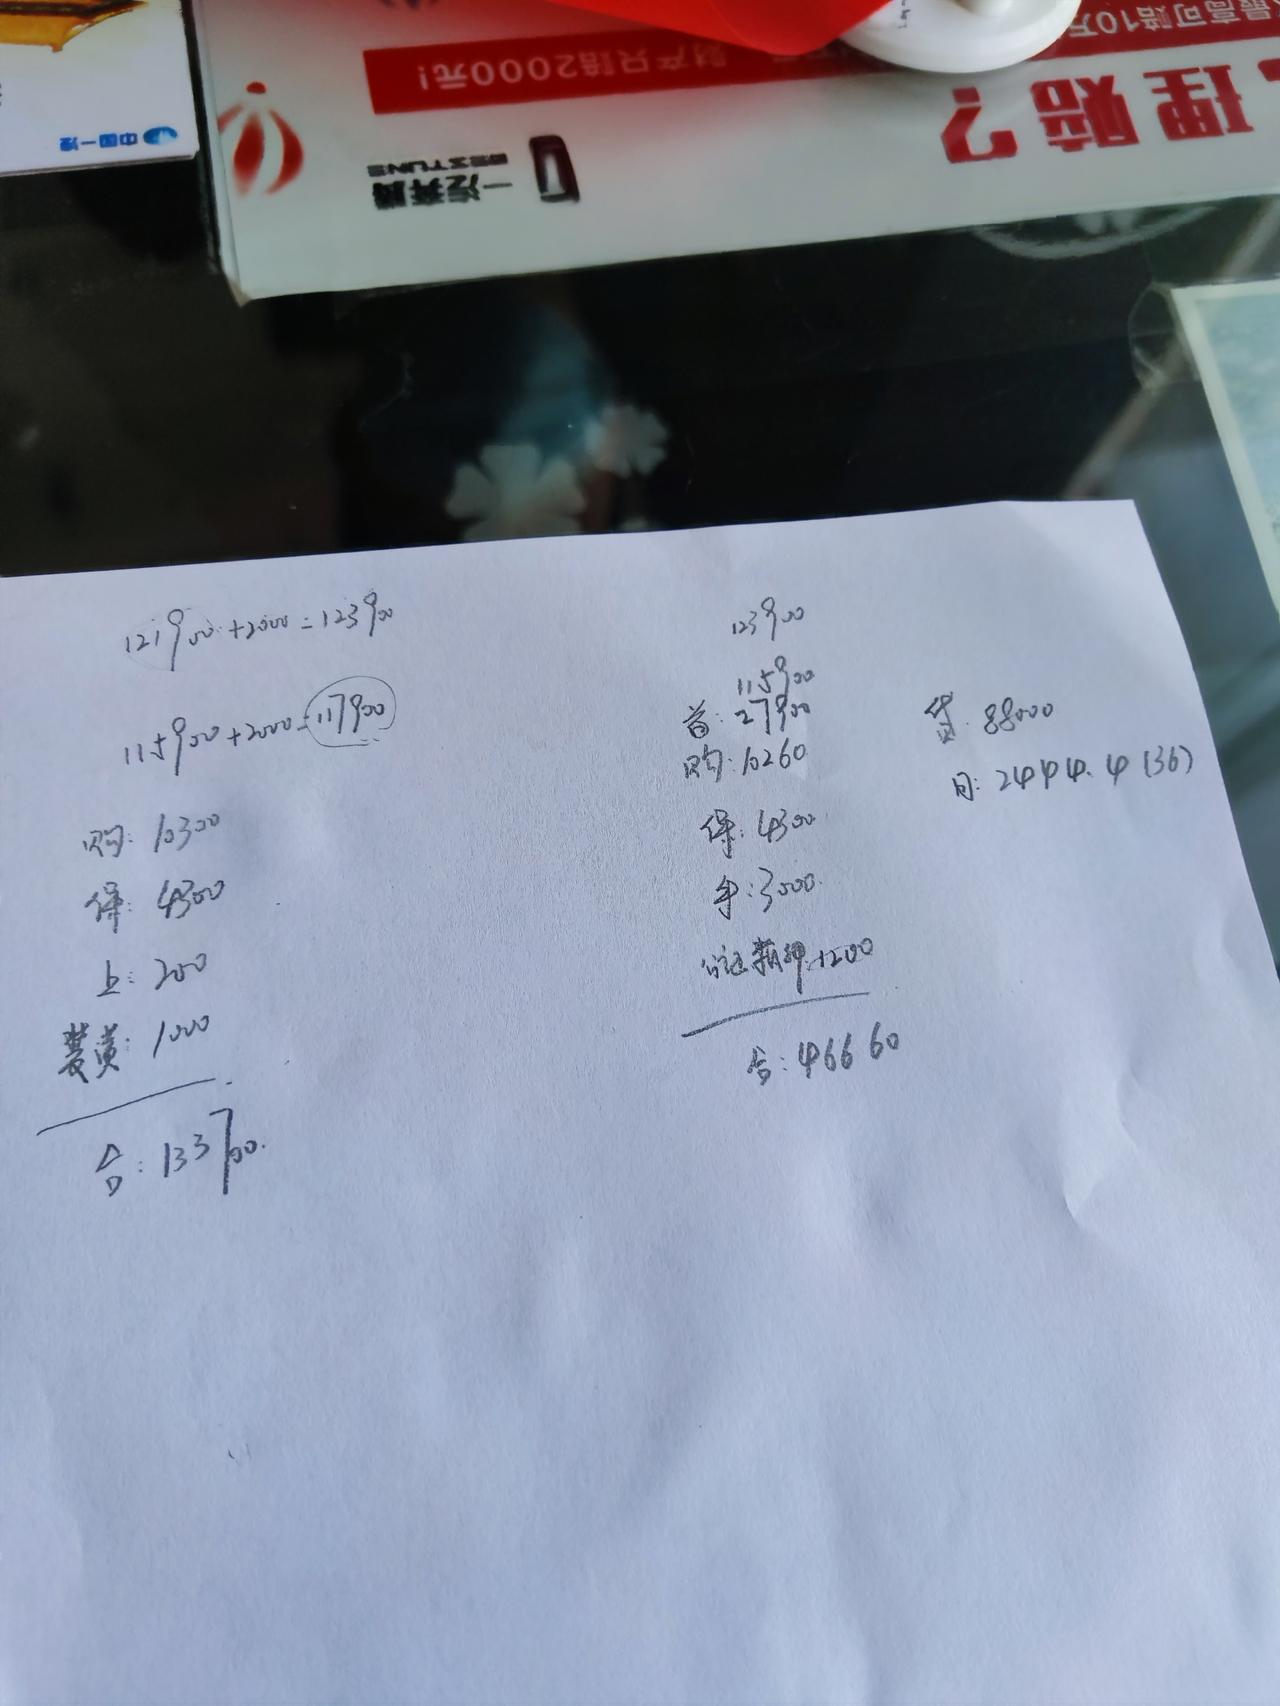 最高可赔10万
财产只赔2000元!
理赔?
中国一汽
一汽奔腾
BESTUNE
121900+2000=123900
115900+2000=117900
购:10300
保:4300
上:200
合:133700.
123900
115900
首:27900
购:10260
保:4300
手:3000.
1200
合:46660
贷:88000
月:2444.4(36)